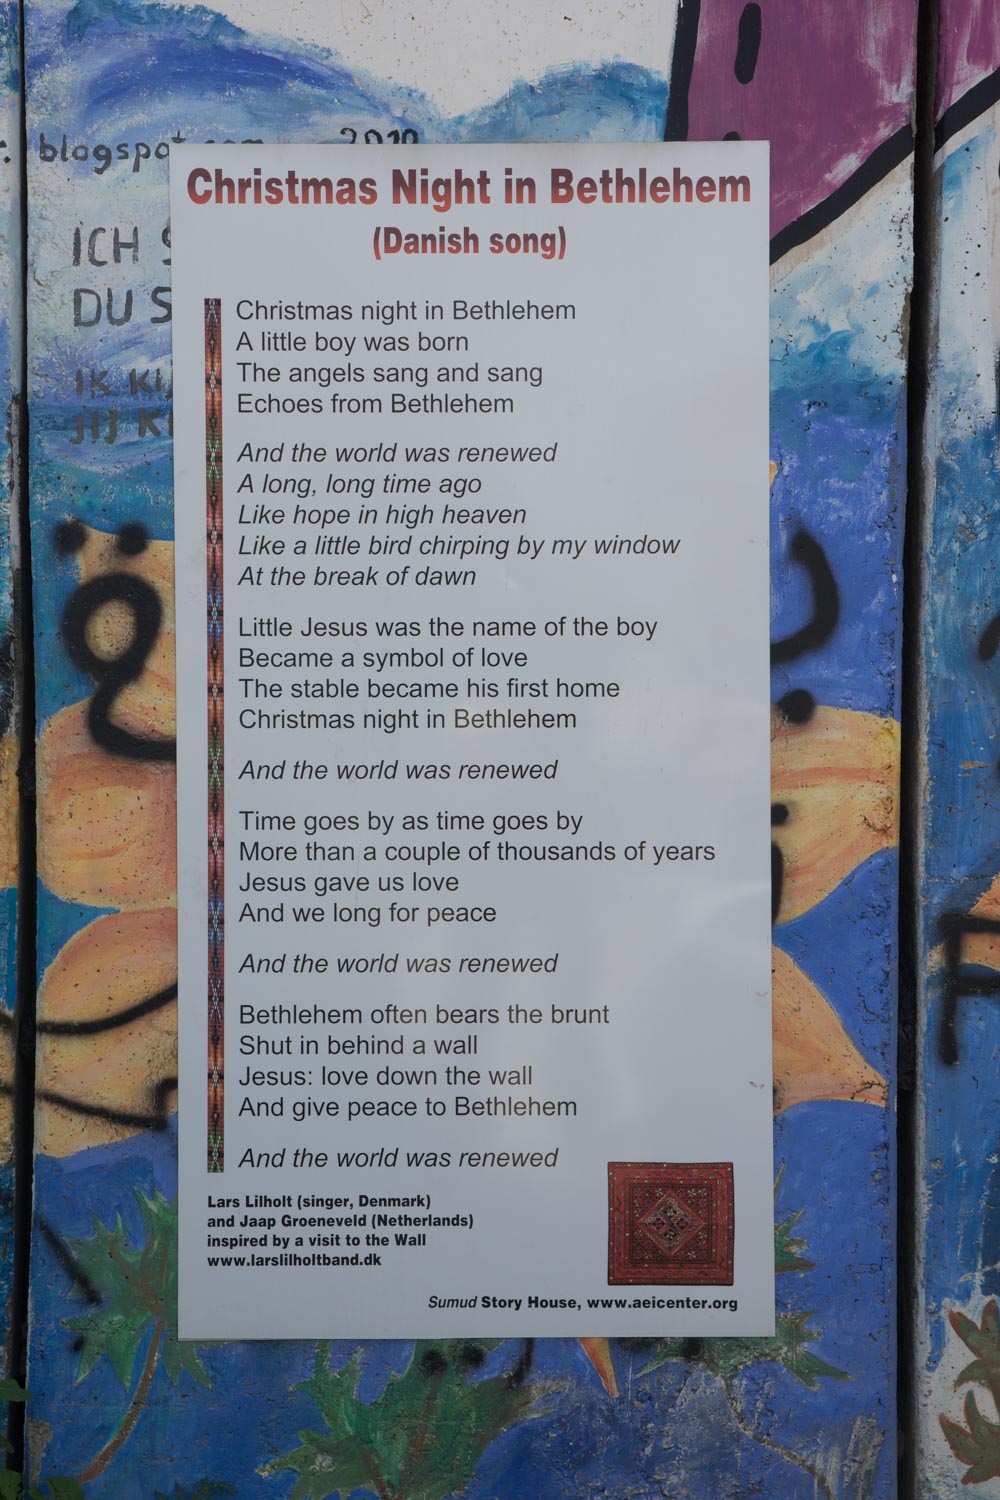 blogspot.com 2010
ICH
DU
Christmas Night in Bethlehem
(Danish song)
Christmas night in Bethlehem
A little boy was born
The angels sang and sang
Echoes from Bethlehem
And the world was renewed
A long, long time ago
Like hope in high heaven
Like a little bird chirping by my window
At the break of dawn
Little Jesus was the name of the boy
Became a symbol of love
The stable became his first home
Christmas night in Bethlehem
And the world was renewed
Time goes by as time goes by
More than a couple of thousands of years
Jesus gave us love
And we long for peace
And the world was renewed
Bethlehem often bears the brunt
Shut in behind a wall
Jesus: love down the wall
And give peace to Bethlehem
And the world was renewed
Lars Lilholt (singer, Denmark)
and Jaap Groeneveld (Netherlands)
inspired by a visit to the Wall
www.larslilholtband.dk
Sumud Story House, www.aeicenter.org